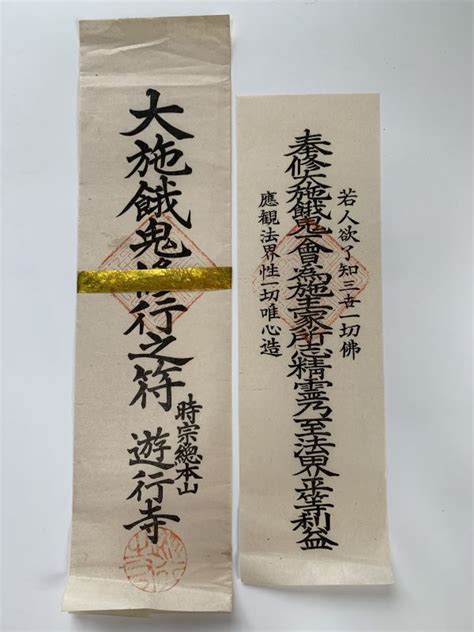 大施餓鬼修行之符
時宗總本山
遊行寺
若人欲了知三世一切佛
奉修大施餓鬼會為施主家所志精霊乃至法界平等利益
應観法界性一切唯心造